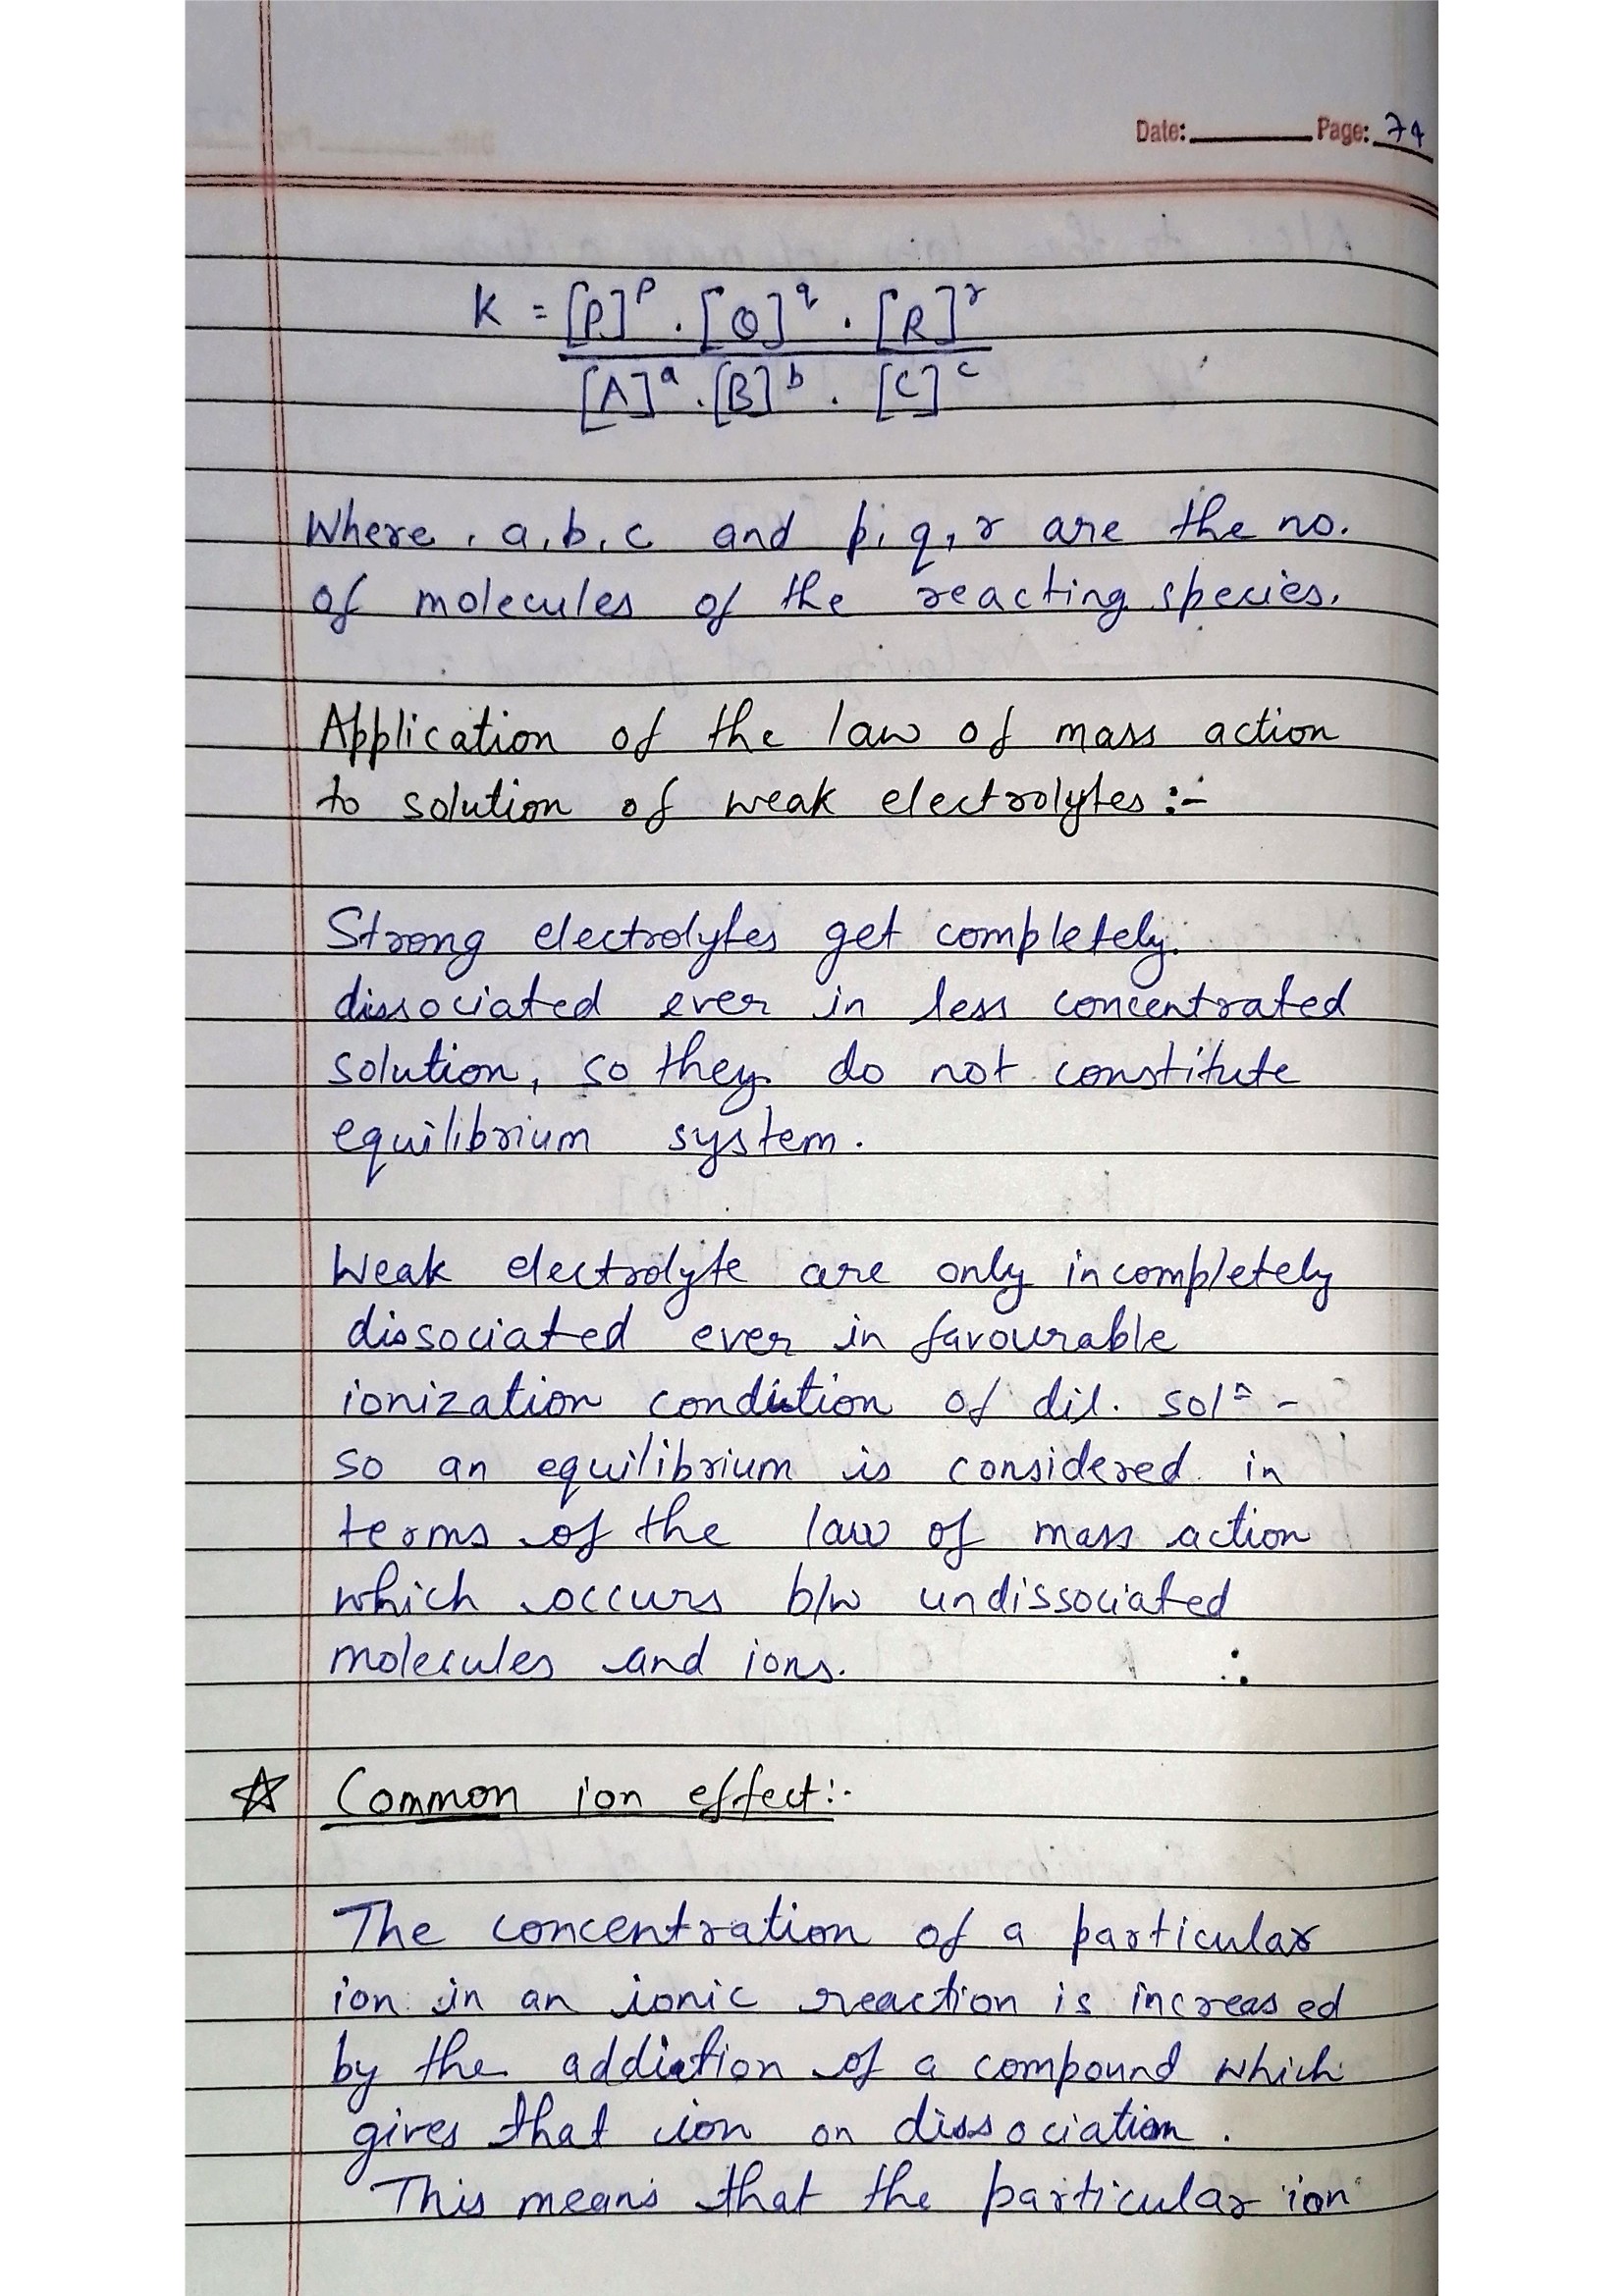 Date: Page: 74
K = [P]^p . [Q]^q . [R]^r
[A]^a . [B]^b . [C]^c
Where, a, b, c and p, q, r are the no.
of molecules of the reacting species.
Application of the law of mass action
to solution of weak electrolytes :-
Strong electrolytes get completely
dissociated ever in less concentrated
solution, so they do not constitute
equilibrium system.
Weak electrolyte are only incompletely
dissociated ever in favourable
ionization condition of dil. solⁿ -
so an equilibrium is considered in
terms of the law of mass action
which occurs b/w undissociated
molecules and ions.
☆ Common ion effect:-
The concentration of a particular
ion in an ionic reaction is increased
by the addiction of a compound which
gives that ion on dissociation.
This means that the particular ion